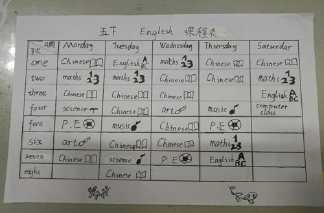 五下 English 课程表
Monday Tuesday Wednesday Thursday Saturday
one Chinese English Chinese Chinese Chinese
two maths maths Chinese Chinese maths
three Chinese Chinese Chinese English
four science Chinese art music computer class
five P.E music Chinese P.E
six art Chinese Chinese maths
seven Chinese science P.E English
eight Chinese